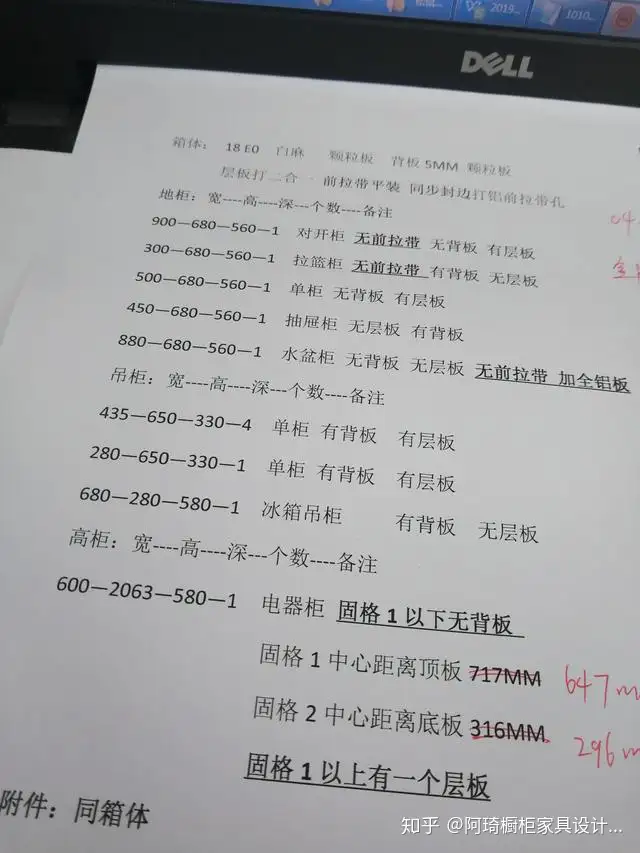 2019...
1010...
DELL
箱体： 18 E0 白麻 颗粒板 背板 5MM 颗粒板
层板打二合一 前拉带平装 同步封边打铝前拉带孔
04
地柜：宽----高----深---个数----备注
900—680—560—1 对开柜 无前拉带 无背板 有层板
300—680—560—1 拉篮柜 无前拉带 有背板 无层板
500—680—560—1 单柜 无背板 有层板
450—680—560—1 抽屉柜 无层板 有背板
880—680—560—1 水盆柜 无背板 无层板 无前拉带 加全铝板
吊柜：宽----高----深---个数----备注
435—650—330—4 单柜 有背板 有层板
280—650—330—1 单柜 有背板 有层板
680—280—580—1 冰箱吊柜 有背板 无层板
高柜：宽----高----深---个数----备注
600—2063—580—1 电器柜 固格 1 以下无背板
固格 1 中心距离顶板 717MM 647m
固格 2 中心距离底板 316MM 296m
固格 1 以上有一个层板
附件：同箱体
知乎 @阿琦橱柜家具设计...